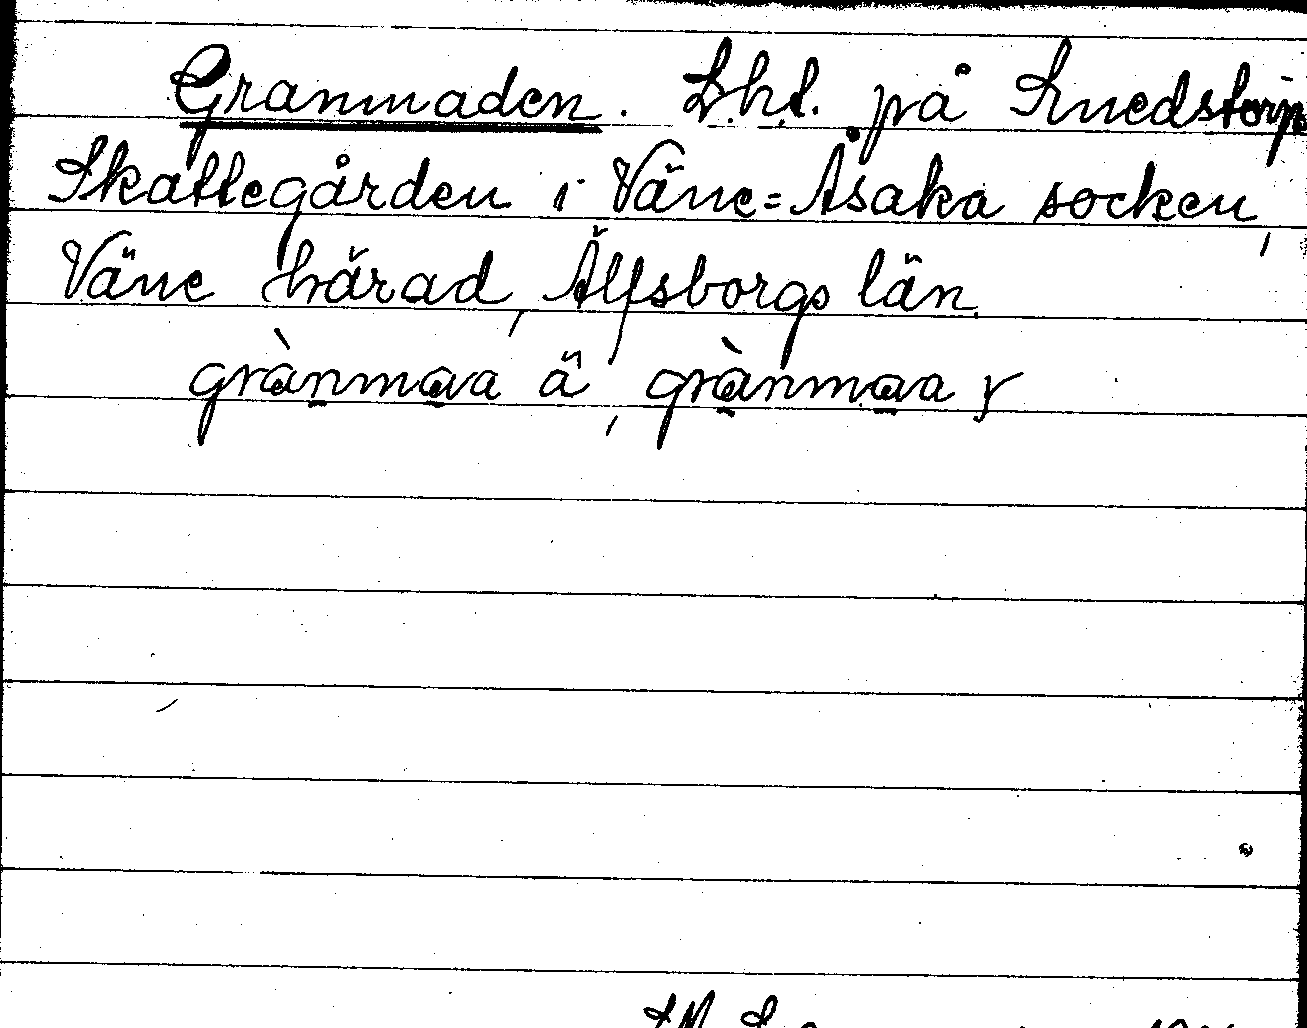 Granmaden. Lht. på Smedstorp
Skattegården i Väne=Åsaka socken,
Väne härad, Älfsborgs län.
grànmava ä, grànmava